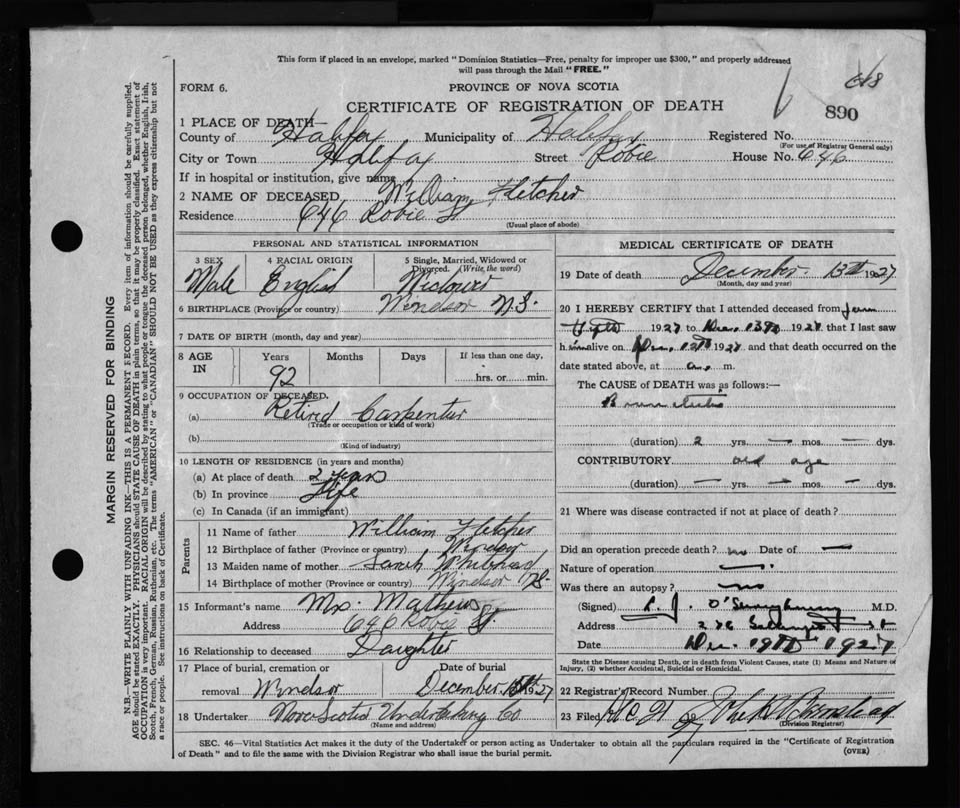 This form if placed in an envelope, marked "Dominion Statistics—Free, penalty for improper use $300," and properly addressed
will pass through the Mail "FREE."
FORM 6.
PROVINCE OF NOVA SCOTIA
CERTIFICATE OF REGISTRATION OF DEATH
890
1 PLACE OF DEATH—
County of Halifax Municipality of Halifax Registered No.
(For use of Registrar General only)
City or Town Halifax Street Robie House No. 646
If in hospital or institution, give name
2 NAME OF DECEASED William Fletcher
Residence 646 Robie St
(Usual place of abode)
PERSONAL AND STATISTICAL INFORMATION
3 SEX 4 RACIAL ORIGIN 5 Single, Married, Widowed or
Divorced. (Write the word)
Male English Widower
6 BIRTHPLACE (Province or country) Windsor N.S.
7 DATE OF BIRTH (month, day and year)
8 AGE IN Years Months Days If less than one day,
92 hrs. or min.
9 OCCUPATION OF DECEASED.
(a) Retired Carpenter
(Trade or occupation or kind of work)
(b)
(Kind of industry)
10 LENGTH OF RESIDENCE (in years and months)
(a) At place of death 2 years
(b) In province Life
(c) In Canada (if an immigrant)
Parents
11 Name of father William Fletcher
12 Birthplace of father (Province or country) Windsor
13 Maiden name of mother Sarah Whitehead
14 Birthplace of mother (Province or country) Windsor NS
15 Informant's name Mrs. Mathews
Address 646 Robie St.
16 Relationship to deceased Daughter
17 Place of burial, cremation or Date of burial
removal Windsor December 15th 1927
18 Undertaker Nova Scotia Undertaking Co
(Name and address)
MEDICAL CERTIFICATE OF DEATH
19 Date of death December 13th 1927
(Month, day and year)
20 I HEREBY CERTIFY that I attended deceased from
1927 to Dec. 13th 1927 that I last saw
him alive on Dec. 12th 1927 and that death occurred on
date stated above, at a. m.
The CAUSE of DEATH was as follows:—
Bronchitis
(duration) 2 yrs. — mos. — dys.
CONTRIBUTORY old age
(duration) — yrs. — mos. — dys.
21 Where was disease contracted if not at place of death?
Did an operation precede death? no Date of —
Nature of operation —
Was there an autopsy? no
(Signed) M.D.
Address
Date Dec. 19th 1927
State the Disease causing Death, or in death from Violent Causes, state (1) Means and Nature of
Injury, (2) whether Accidental, Suicidal or Homicidal.
22 Registrar's Record Number
23 Filed 21 1927
(Division Registrar)
SEC. 46—Vital Statistics Act makes it the duty of the Undertaker or person acting as Undertaker to obtain all the particulars required in the "Certificate of Registration
of Death" and to file the same with the Division Registrar who shall issue the burial permit. (OVER)
MARGIN RESERVED FOR BINDING
N.B.—WRITE PLAINLY WITH UNFADING INK—THIS IS A PERMANENT RECORD. Every item of information should be carefully supplied.
AGE should be stated EXACTLY. PHYSICIANS should STATE CAUSE OF DEATH in plain terms, so that it may be properly classified. Exact statement of
OCCUPATION is very important. RACIAL ORIGIN will be described by stating to what people or tongue the deceased person belonged, whether English, Irish,
Scotch, French, German, Russian, Ruthenian, etc. The terms "AMERICAN" or "CANADIAN" SHOULD NOT BE USED as they express citizenship but not
a race or people. See instructions on back of Certificate.